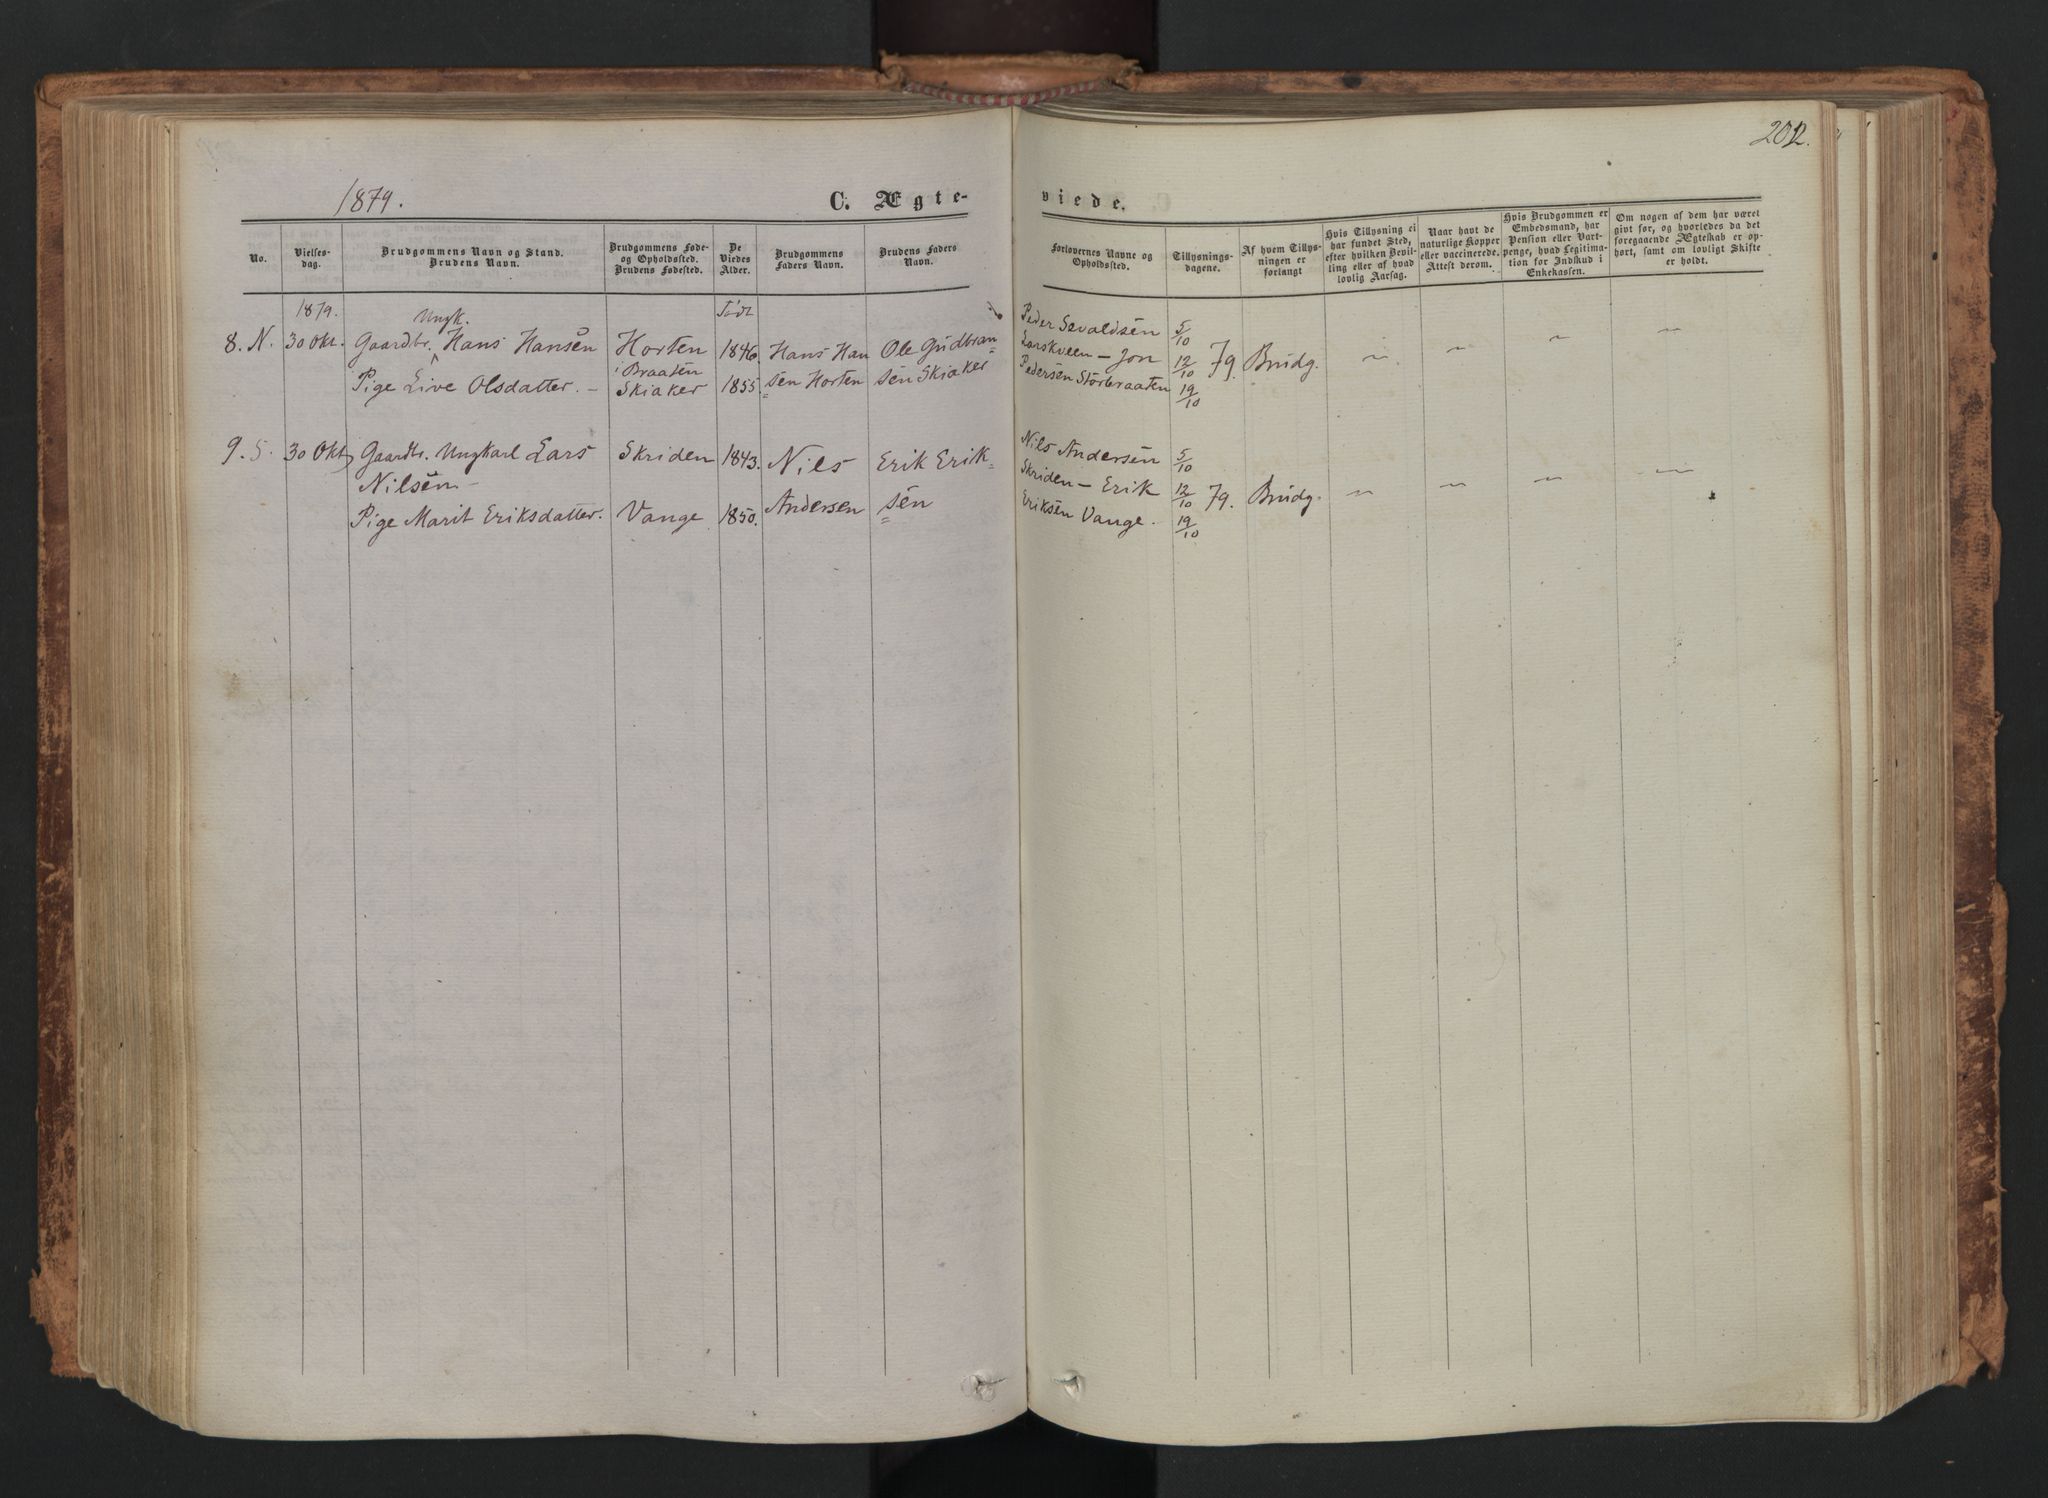 202.
1879.
C. Ægte-
viede.
No.
Vielses-
dag.
Brudgommens Navn og Stand.
Brudens Navn.
Brudgommens Føde-
og Opholdssted.
Brudens Fødested.
De
Viedes
Alder.
Brudgommens
Faders Navn.
Brudens Faders
Navn.
Forlovernes Navne og
Opholdssted.
Tillysnings-
dagene.
Af hvem Tillys-
ningen er
forlangt
Hvis Tillysning ei
har fundet Sted,
efter hvilken Bevil-
ling eller af hvad
lovlig Aarsag.
Naar havt de
naturlige Kopper
eller vaccinerede.
Attest derom.
Hvis Brudgommen er
Embedsmand, har
Pension eller Vart-
penge, hvad Legitima-
tion for Indskud i
Enkekassen.
Om nogen af dem har været
gift før, og hvorledes da det
foregaaende Ægteskab er op-
hørt, samt om lovligt Skifte
er holdt.
1879.
Født
Ungk.
8. N. 30 Okt. Gaardbr. Hans Hansen
Pige Live Olsdatter. –
Horten
i Braaten
Skiaker
1846
1855.
Hans Han
sen Horten
Ole Gudbran=
sen Skiaker
Peder Sevaldsen
Larskveen – Jon
Pedersen Storbraaten
5/10
12/10 79.
19/10
Brudg. " " " "
9. S. 30 Okt. Gaardbr. Ungkarl Lars
Nilsen –
Pige Marit Eriksdatter.
Skriden
Vange
1843.
1850.
Nils
Andersen
Erik Erik=
sen
Nils Andersen
Skriden – Erik
Eriksen Vange.
5/10
12/10 79.
19/10
Brudg. " " " "